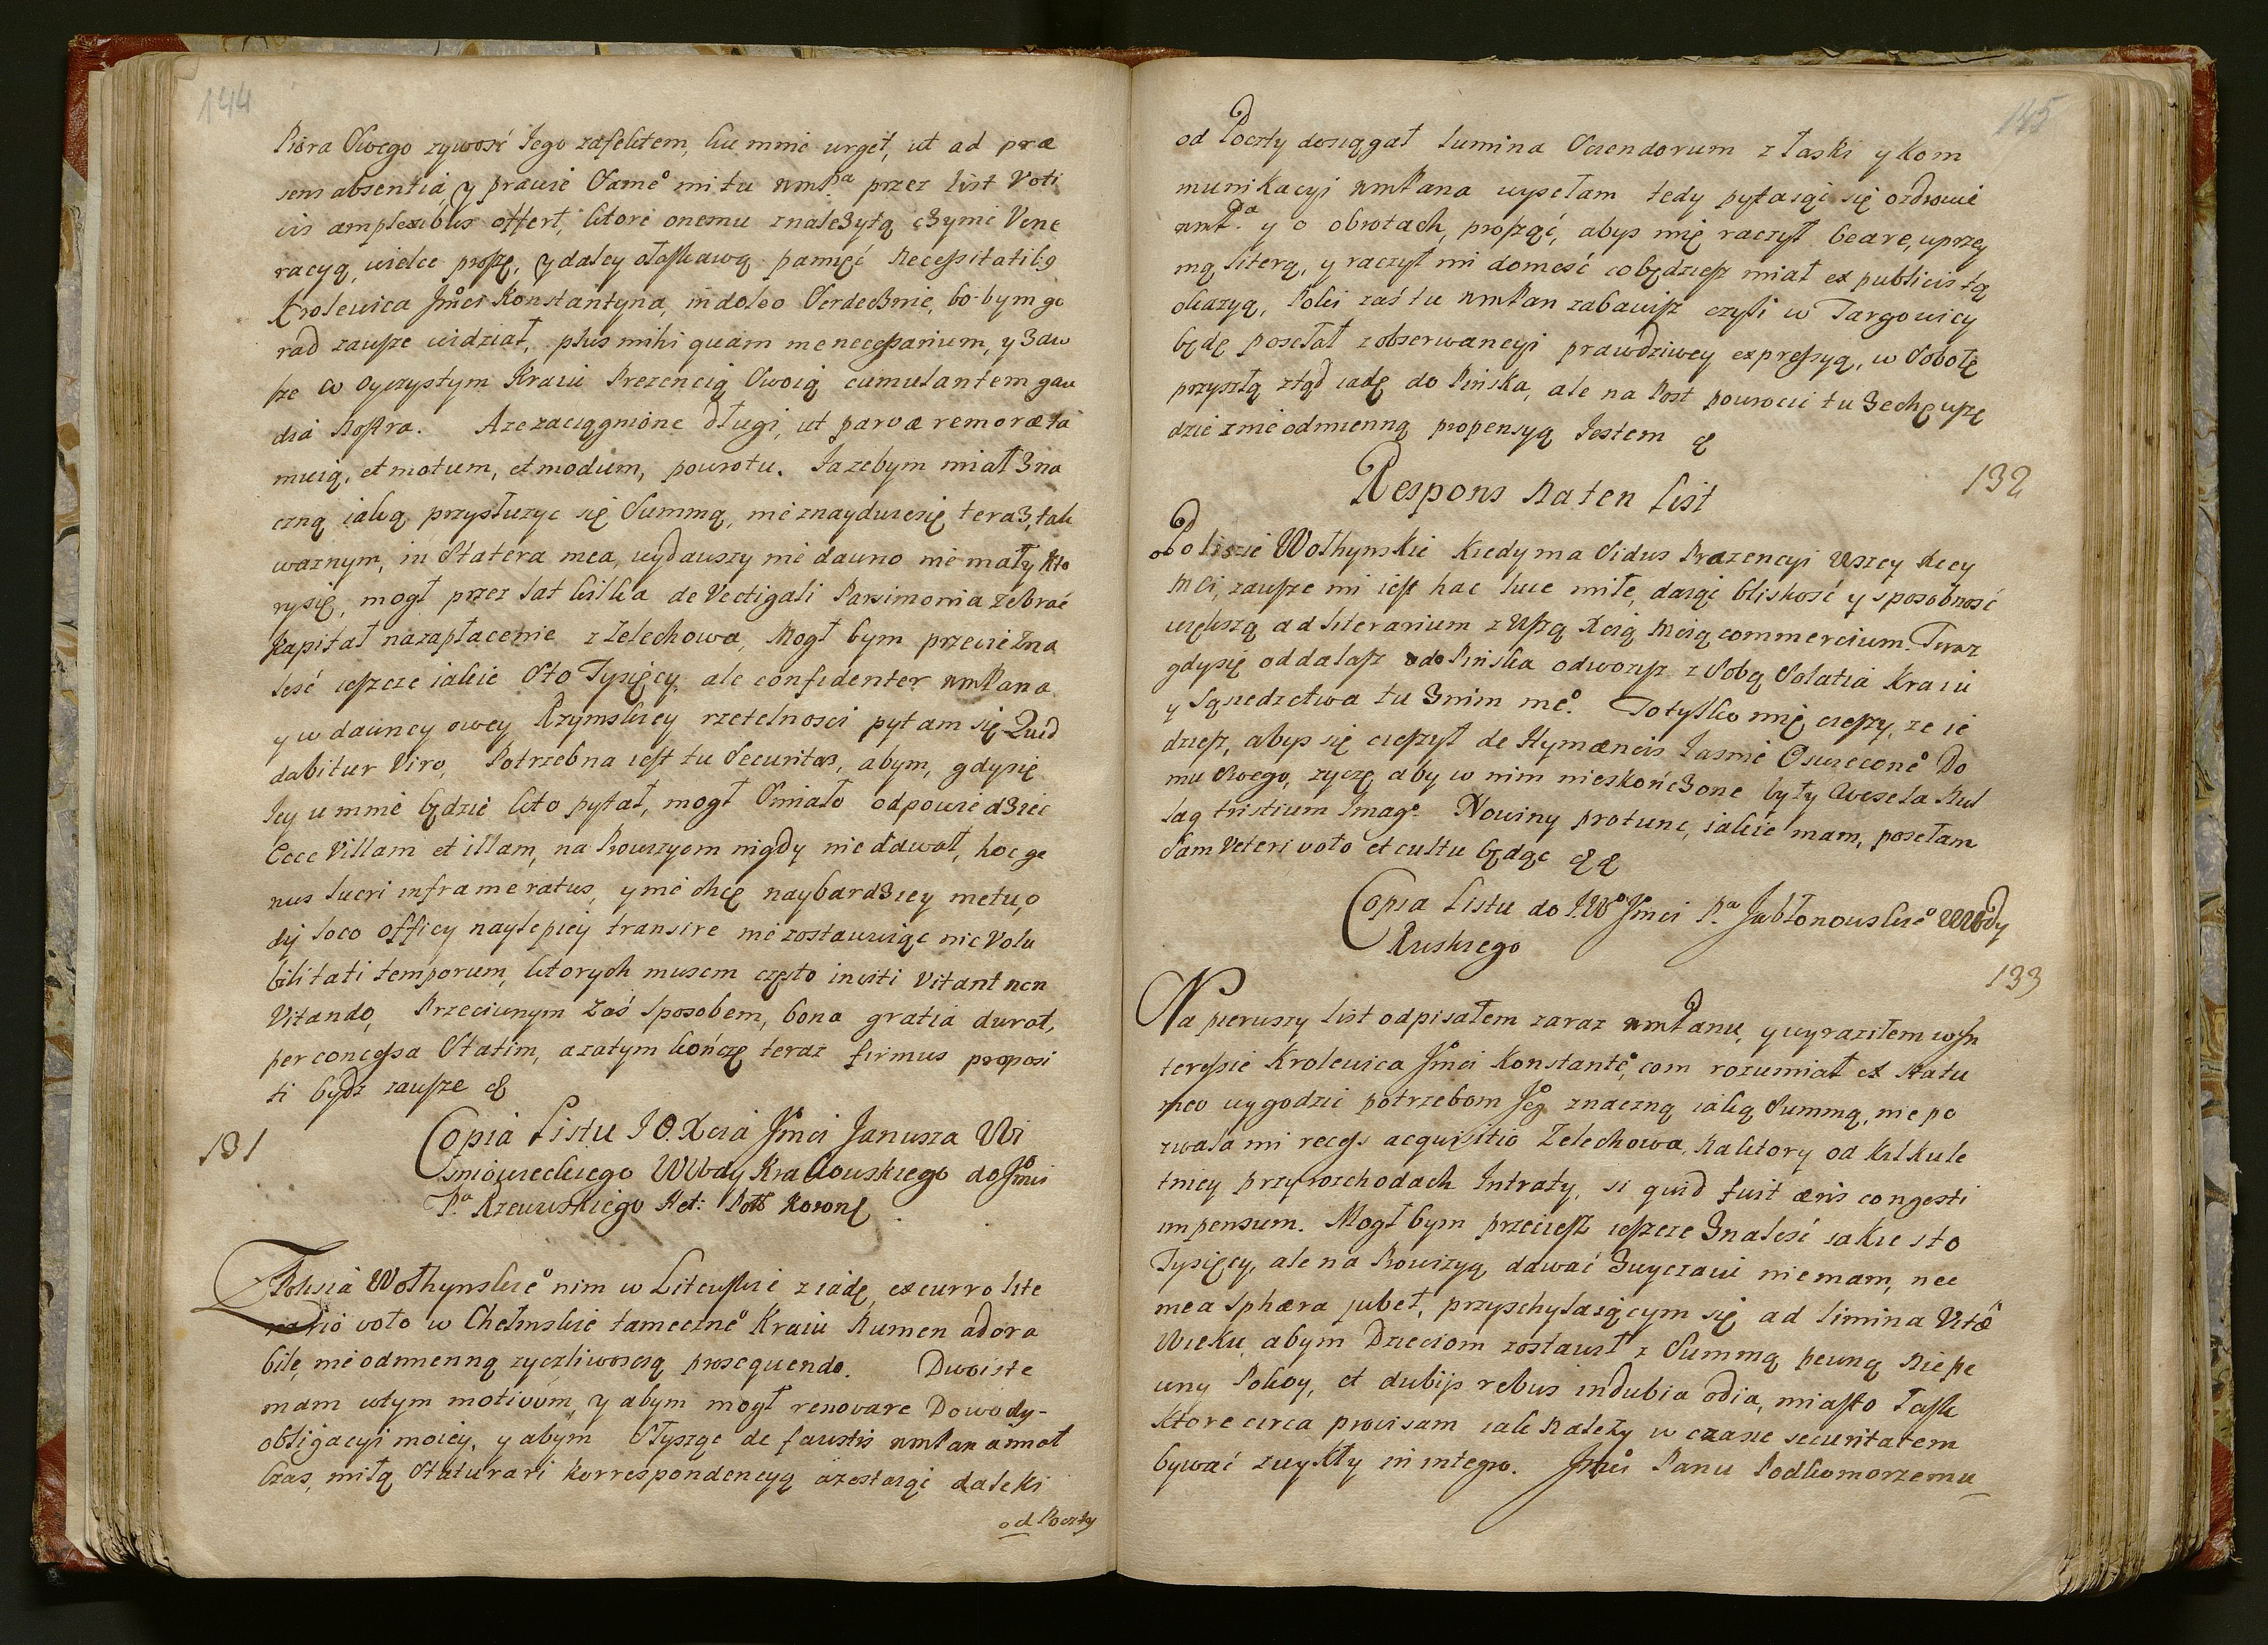 144
Piora Swego zywosć Jego zaseletem, ku mnie urget, ut ad præ
sens absentiá, y prawie Same͞o mi tu wmP.ª przez list Voti
vis amplexibus offert, ktore onemu z nalezytą czynie Vene
racyą, wielce proszę, y daley o łaskawą pamięć Necessitatib9
Krolewica Jmci Konstantyna, indoleo Serdecznie, bo bym go
rad zawsze widział, plus mihi quam me necessarium, y zaw
sze w oyczystym Kraiu Prezencią Swoią cumulantem gau
dia Nostra. A ze zaciągnione długi, ut parvæ remoræ ta
muią, et motum, et modum, powrotu. Ja zebym miał zna
czną iaką przysłuzyc się Summą, nie znayduie się teraz, tak
waznym, in Statera mea, wydawszy nie dawno nie mały, kto
ry się, mogł przez lat kilka de Vectigali Parsimonia zebrać
Kapitał na zapłacenie z Zelechowa, Mogł bym przecie zna
lesć ieszcze iakie Sto Tysięcy, ale confidenter wmPana
y w dawney owey Rzymskiey rzetelnosci pytam się Quid
dabitur Viro, Potrzebna iest tu Securitas, abym, gdy się
Jey u mnie będzie kto pytał, mogł Smiało odpowiedziec
Ecce Villam et illam, na Prowizyom nigdy nie dawał, hoc ge
nus lucri infra me ratus, y nie chcę naybardziey metu, o
dij loco officij naylepiey transire nie zostawuiąc nic Volu
bilitati temporum, ktorych musem często inviti Vitant non
Vitando, Przeciwnym zaś Sposobem, bona gratiá durat,
per concessa Statim, a zatym kończę teraz firmus proposi
ti bydz zawsze &
131
Copia Listu J O. Xcia Jmci Janusza Wi
sniowieckiego WWdy Krakowskiego do Jmci
P.ª Rzewuskiego Het: Pol͞o Koron͞e
Z Polisia Wołhynskie͞o nim w Litewskie z iadę, excurro lite
rario voto w Chełmskie tameczne͞o Kraiu Numen adora
bile, nieodmienną zyczliwoscią prosequendo. Dwoiste
mam w tym motivum, y abym mogł renovare Dowody
obligacyi moiey, y abym Słysząc de faustis wmPana mol
czas, miłą Staturari korrespondencyą a zostaiąc daleki
od Poczty
145
od Poczty dosiągał lumina Sciendorum z łaski y kom
munikacyi wmPana wysełam tedy pytaiąc się o zdrowie
wmP.ª y o obrotach, prosząc, abys mię raczył beare, uprzey
mą literą, y raczył mi doniesć co będziesz miał ex publicis tą
okazyą, Poki zaś tu wmPan zabawisz czyli w Targowicy
będę posełał z obserwancyi prawdziwey expressyą, w Sobotę
przyszłą ztąd iadę do Pinska, ale na Post powroci tu zechę wszę
dzie z nieodmienną propensyą Jestem &
Respons na ten list
132
Polisie Wołhynskie kiedy ma Sidus Prazencyi Wszey Xcey
Mci, zawsze mi iest hac luce miłe, daiąc bliskość y sposobność
większą ad literarium z Wszą Xcią Mcią commercium. Teraz
gdy się oddalasz do Pinska odwozisz z Sobą Solatia Kraiu
y Sąsiedztwa tu z nim me͞o. To tylko mię cieszy, ze ie
dziesz, abys się cieszył de Hymæneis Jasnie Oswiecone͞o Do
mu Swego, zyczę aby w nim nieskończone były Wesela Nul
laq tristium Imago. Nowiny protunc, iakie mam, posełam
Sam Veteri voto et cultu będąc & &
Copia Listu do J.W͞o Jmci P.ª Jabłonowskie͞o WWdy
Ruskiego
133
Na pierwszy list odpisałem zaraz wmPanu, y wyraziłem w In
teressie Krolewica Jmci Konstante͞o, com rozumiał ex statu
meo wygodzic potrzebom Jeg͞o znaczną iaką Summą, nie po
zwala mi recess acquisitio Zelechowa, na ktory od kilkule
tniey przy rozchodach Intraty, si quid fuit æris congesti
impensum. Mogł bym przeciesz ieszcze znalesć iakie sto
Tysięcy, ale na Prowizyą dawać zwyczaiu nie mam, nec
mea Sphæra jubet, przychylaiącym się ad limina Vitæ
Wieku, abym Dzieciom zostawił z Summą pewną niepe
wny Pokoy, et dubijs rebus indubia odia, miasto łask
ktore circa provisam iak nalezy w czasie securitatem
bywać zwykły in integro. Jmci Panu Podkomorzemu